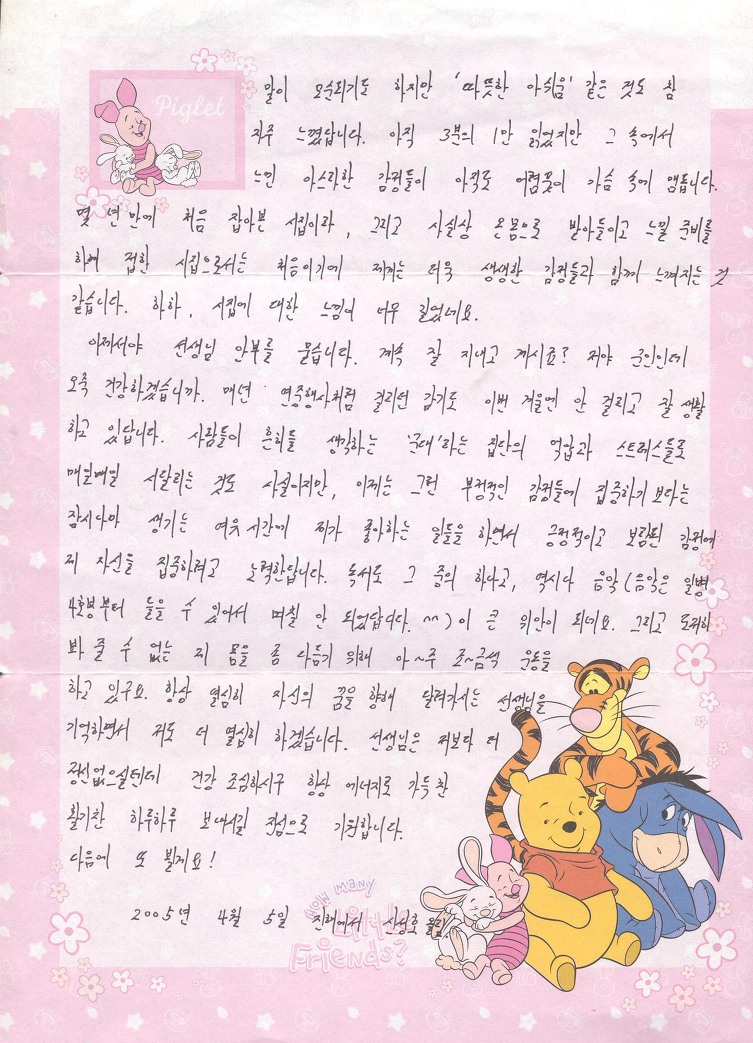 Piglet
말이 모순되기도 하지만 '따뜻한 아쉬움' 같은 것도 참
자주 느꼈답니다. 아직 3분의 1만 읽었지만 그 속에서
느낀 아스라한 감정들이 아직도 어렴풋이 가슴 속에 맴돕니다.
몇 년만에 처음 잡아본 시집이라, 그리고 사실상 온몸으로 받아들이고 느낄 준비를
하여 접한 시집으로서는 처음이기에 제게는 더욱 생생한 감정들과 함께 느껴지는 것
같습니다. 하하, 시집에 대한 느낌이 너무 길었네요.
이제서야 선생님 안부를 묻습니다. 계속 잘 지내고 계시죠? 저야 군인인데
오죽 건강하겠습니까. 매년 연중행사처럼 걸리던 감기도 이번 겨울엔 안 걸리고 잘 생활
하고 있답니다. 사람들이 흔히들 생각하는 '군대'라는 집단의 억압과 스트레스들로
매일매일 시달리는 것도 사실이지만, 이제는 그런 부정적인 감정들에 집중하기 보다는
잠시나마 생기는 여유 시간에 제가 좋아하는 일들을 하면서 긍정적이고 보람된 감정에
제 자신을 집중하려고 노력한답니다. 독서도 그 중의 하나고, 역시나 음악(음악은 일병
4호봉부터 들을 수 있어서 며칠 안 되었답니다.^^)이 큰 위안이 되네요. 그리고 도저히
봐 줄 수 없는 제 몸을 좀 다듬기 위해 아~주 조~금씩 운동을
하고 있구요. 항상 열심히 자신의 꿈을 향해 달려가시는 선생님을
기억하면서 저도 더 열심히 하겠습니다. 선생님은 저보다 더
정신없으실텐데 건강 조심하시구 항상 에너지로 가득 찬
활기찬 하루하루 보내시길 진심으로 기원합니다.
다음에 또 뵐게요!
2005년 4월 5일 진해에서
How many
Little
Friends?